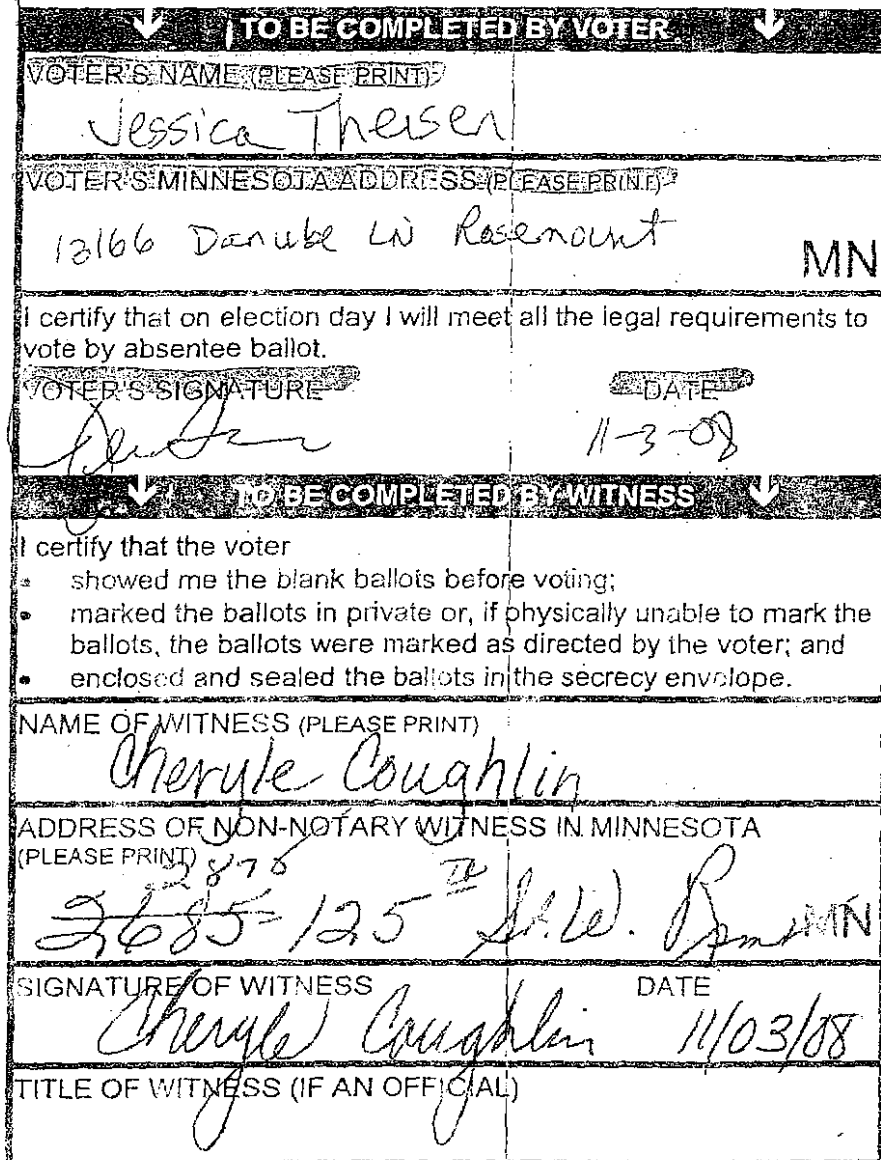 TO BE COMPLETED BY VOTER
VOTER'S NAME (PLEASE PRINT)
Jessica Theisen
VOTER'S MINNESOTA ADDRESS (PLEASE PRINT)
Danube LN Rosemount
MN
I certify that on election day I will meet all the legal requirements to
vote by absentee ballot.
VOTER'S SIGNATURE DATE
11-3-08
TO BE COMPLETED BY WITNESS
I certify that the voter
• showed me the blank ballots before voting;
• marked the ballots in private or, if physically unable to mark the
ballots, the ballots were marked as directed by the voter; and
• enclosed and sealed the ballots in the secrecy envelope.
NAME OF WITNESS (PLEASE PRINT)
Cheryle Coughlin
ADDRESS OF NON-NOTARY WITNESS IN MINNESOTA
(PLEASE PRINT)
2685 125 TH St. W. MN
SIGNATURE OF WITNESS DATE
Cheryle Coughlin 11/03/08
TITLE OF WITNESS (IF AN OFFICIAL)